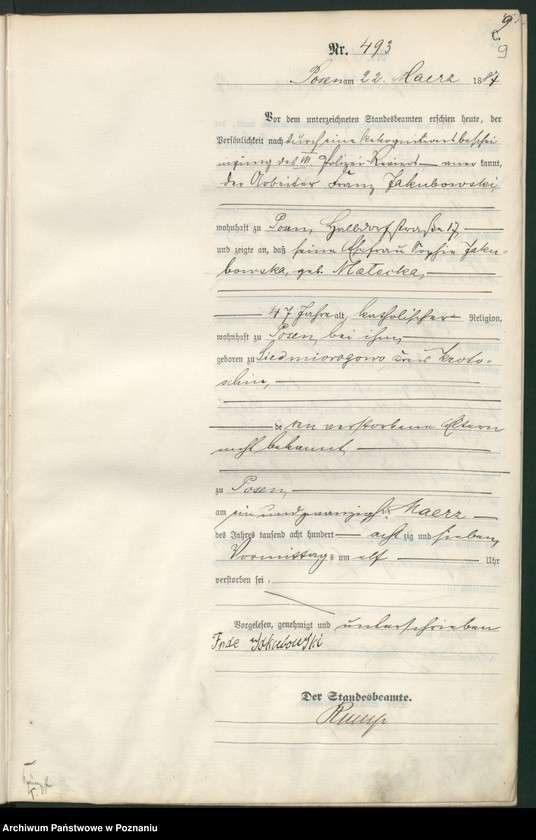 9
C.
9
Nr. 493
Posen am 22. Maerz 1887
Vor dem unterzeichneten Standesbeamten erschien heute, der
Persönlichkeit nach durch eine Rekognitionsbeschei
nigung des III. Polizei Reviers anerkannt,
der Arbeiter Franz Jakubowski,
wohnhaft zu Posen, Halbdorfstraße 17,
und zeigte an, daß seine Ehefrau Sophie Jaku-
bowska, geb. Malecka,
47 Jahre alt, katholischer Religion,
wohnhaft zu Posen, bei ihm,
geboren zu Siedmiorogowo, Kreis Kroto-
schin,
deren verstorbene Eltern
nicht bekannt
zu Posen,
am ein und zwanzigst. Maerz
des Jahres tausend acht hundert achtzig und sieben,
Vormittags um elf Uhr
verstorben sei.
Vorgelesen, genehmigt und unterschrieben
Jakubowski
Der Standesbeamte.
Archiwum Państwowe w Poznaniu